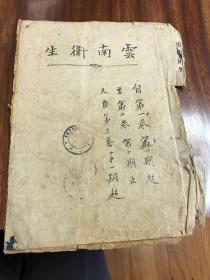 雲南衛生
自第一卷期起
至第二卷第十期止
又自第三卷第一期起